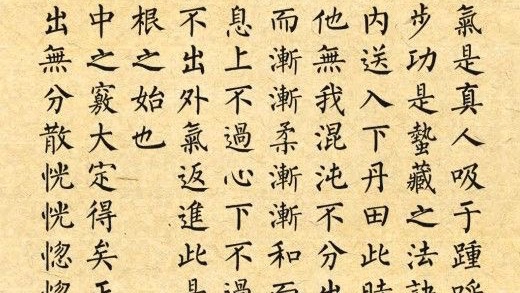 氣是真人吸于踵呼
步功是蟄藏之法訣
内送入下丹田此時
他無我混沌不分出
而漸漸柔漸漸和而
息上不過心下不過
不出外氣返進此是
根之始也
中之竅大定得矣
出無分散恍恍惚惚